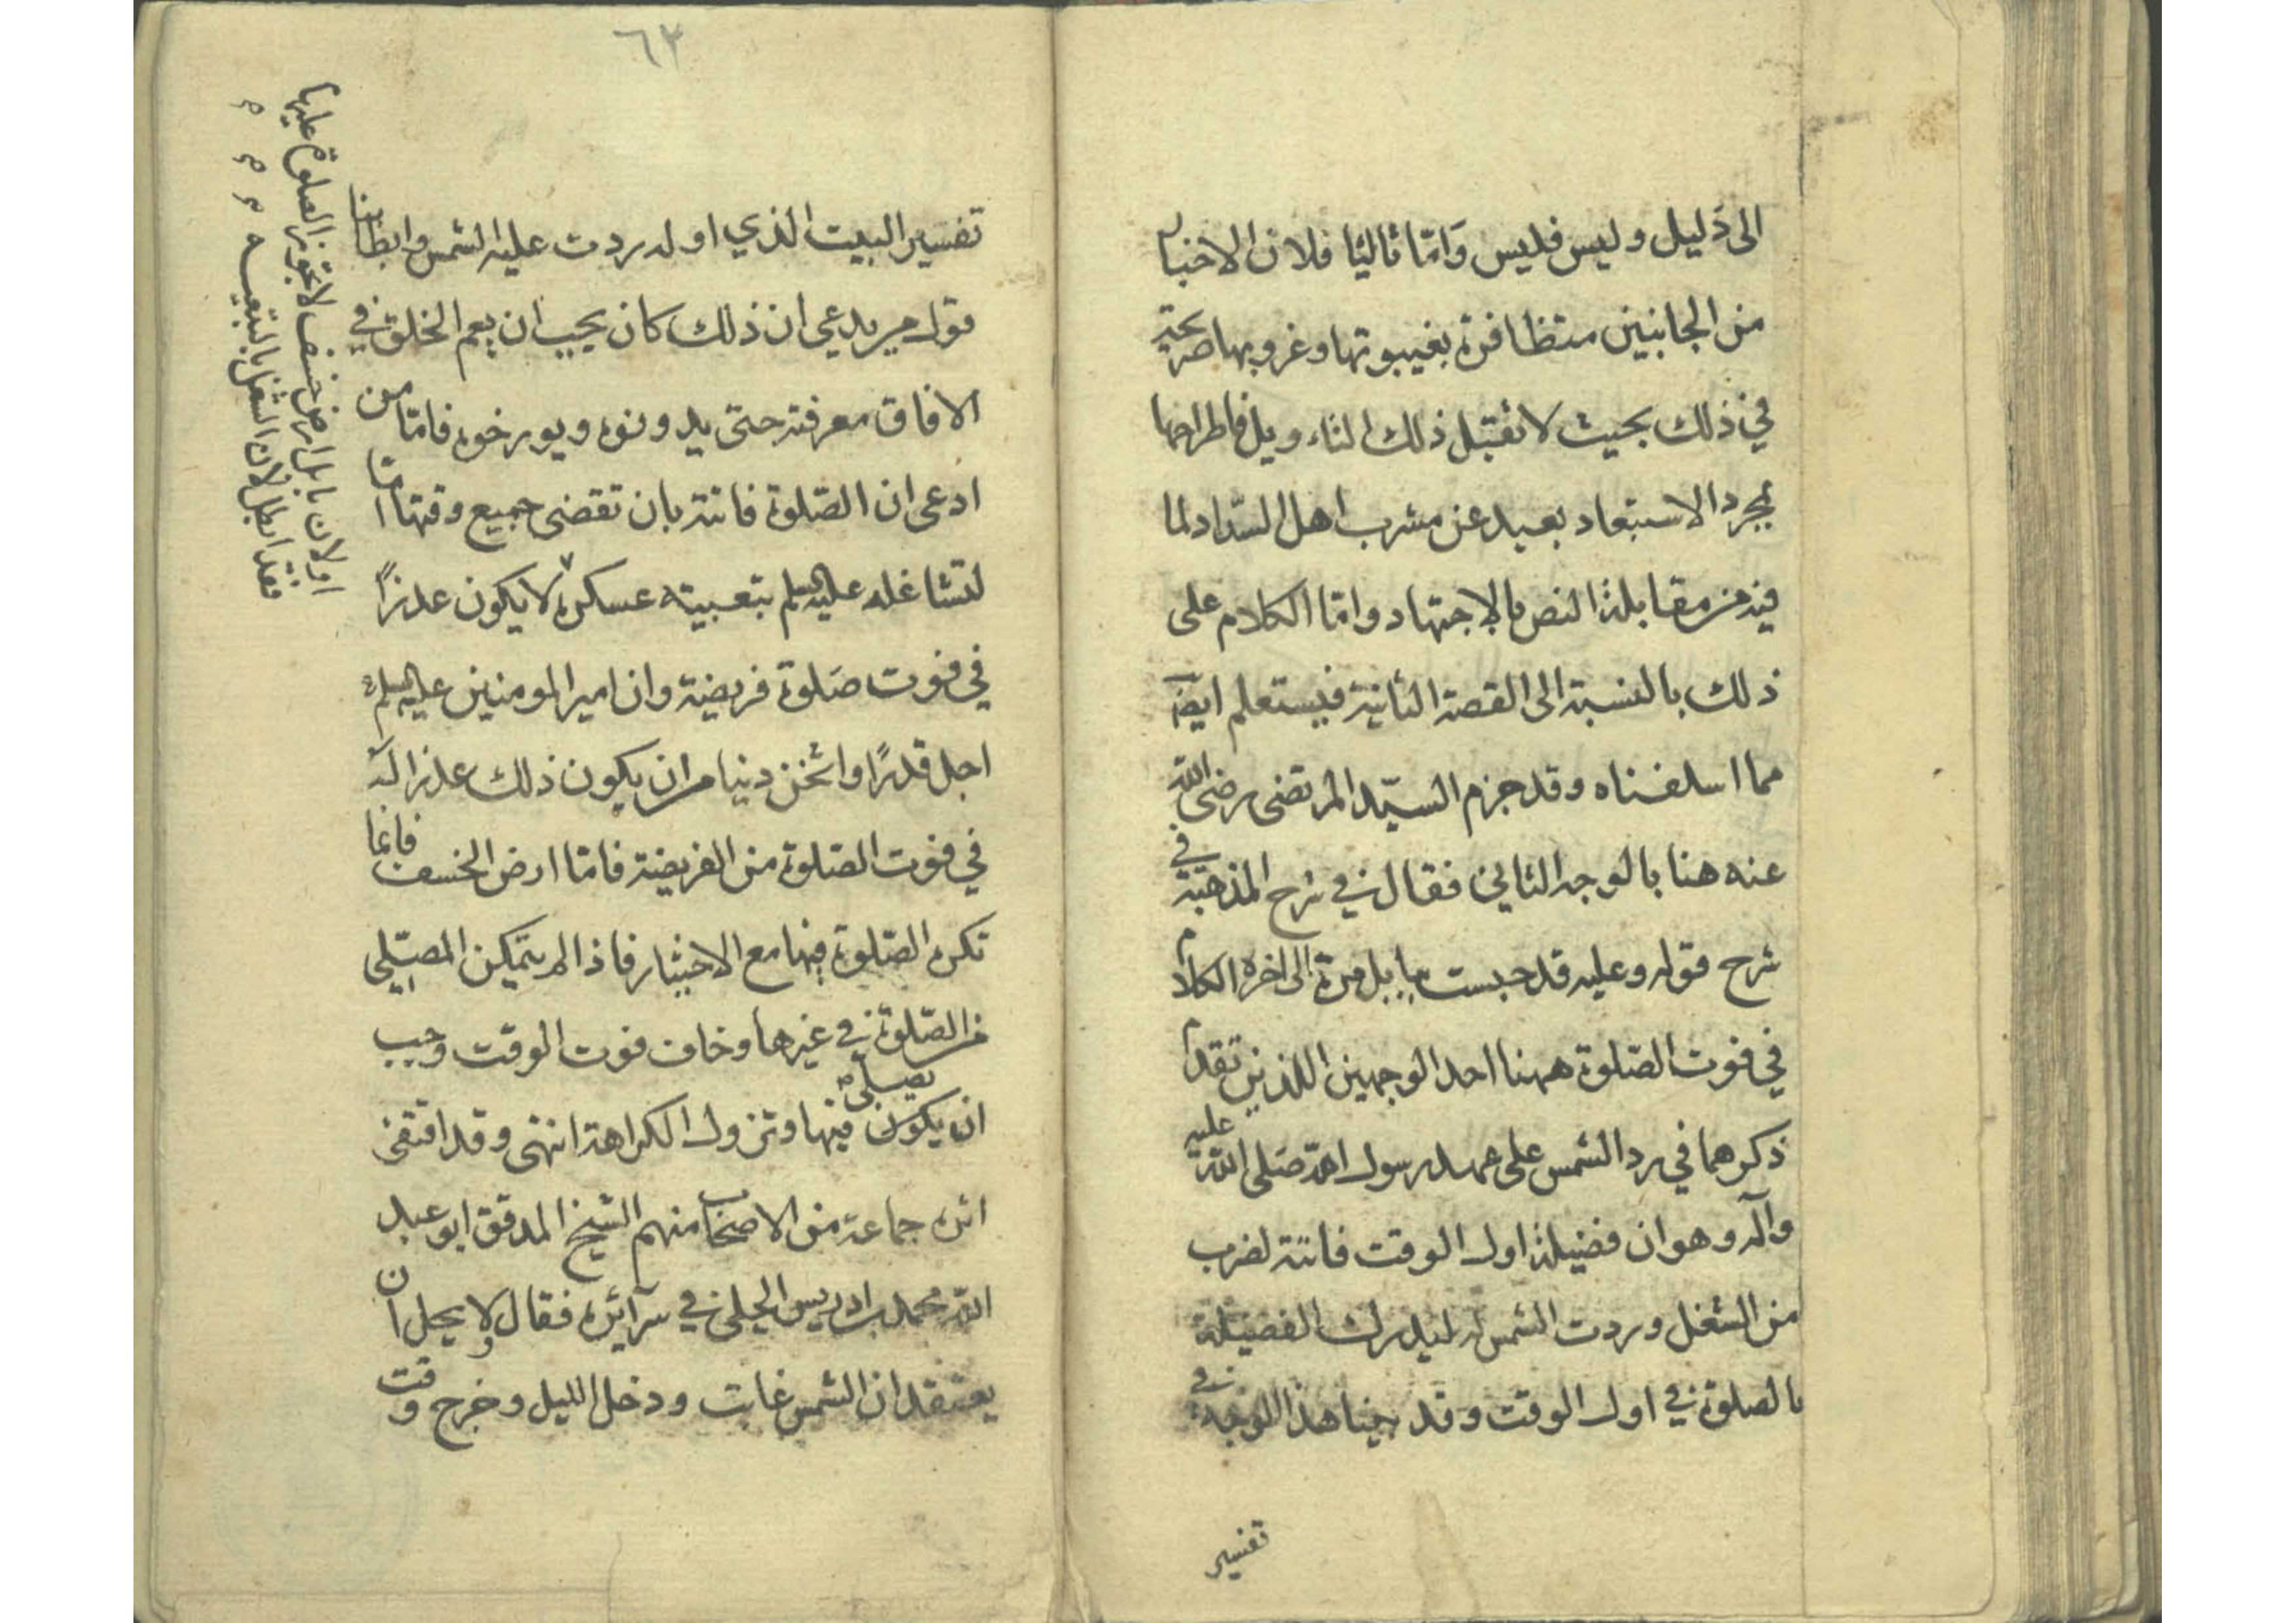 الى دليل وليس فليس وامّا ثالثا فلان الاخبار
من الجانبين متظافرة بغيبوبتها وغروبها صريحة
في ذلك بحيث لا تقبل ذلك التاويل فاطراحها
بمجرد الاستبعاد بعيد عن مشرب اهل السّداد لما
فيه من مقابلة النص بالاجتهاد وامّا الكلام على
ذلك بالنسبة الى القصة الثانية فيستعلم ايضًا
مما اسلفناه وقد جزم السيّد المرتضى رضي الله
عنه هنا بالوجه الثاني فقال في شرح المذهبة في
شرح قوله وعليه قد حبست ببابل مرة الى اخره الكلام
في فوت الصّلوة ههنا احد الوجهين اللذين تقدم
ذكرهما في رد الشمس على عهد رسول الله صلى الله عليه
وآله وهو ان فضيلة اول الوقت فاتته لضرب
من الشغل وردت الشمس له ليدرك الفضيلة
بالصلوة في اول الوقت وقد بينا هذا الوجه في
تفسير
٦٣
تفسير البيت الذي اوله ردت عليه الشمس وابطلنا
قول من يدعي ان ذلك كان يجب ان يعم الخلق في
الافاق معرفته حتى يدونوه ويورخوه فامّا من
ادعى ان الصّلوة فاتته بان تقضى جميع وقتها اما
لتشاغله عليه السلم بتعبيته عسكره لا يكون عذرًا
في فوت صلوة فريضة وان امير المومنين عليه السلم
اجل قدرًا واثخن دينا من ان يكون ذلك عذرا له
في فوت الصّلوة من الفريضة فامّا ارض الخسف فانما
تكره الصّلوة فيها مع الاختيار فاذا لم يتمكن المصلّي
من الصّلوة في غيرها وخاف فوت الوقت وجب
ان يكون يصلي فيها وتزول الكراهة انتهى وقد اقتفى
اثره جماعة من الاصحاب منهم الشيخ المدقق ابو عبد
الله محمد بن ادريس الحلي في سرائره فقال ولا يحل ان
يعتقد ان الشمس غابت ودخل الليل وخرج وقت
او لان بابل ارض خسف لا تجوز الصلوة عليها
فقد ابطل لان الشغل بالتعبيه